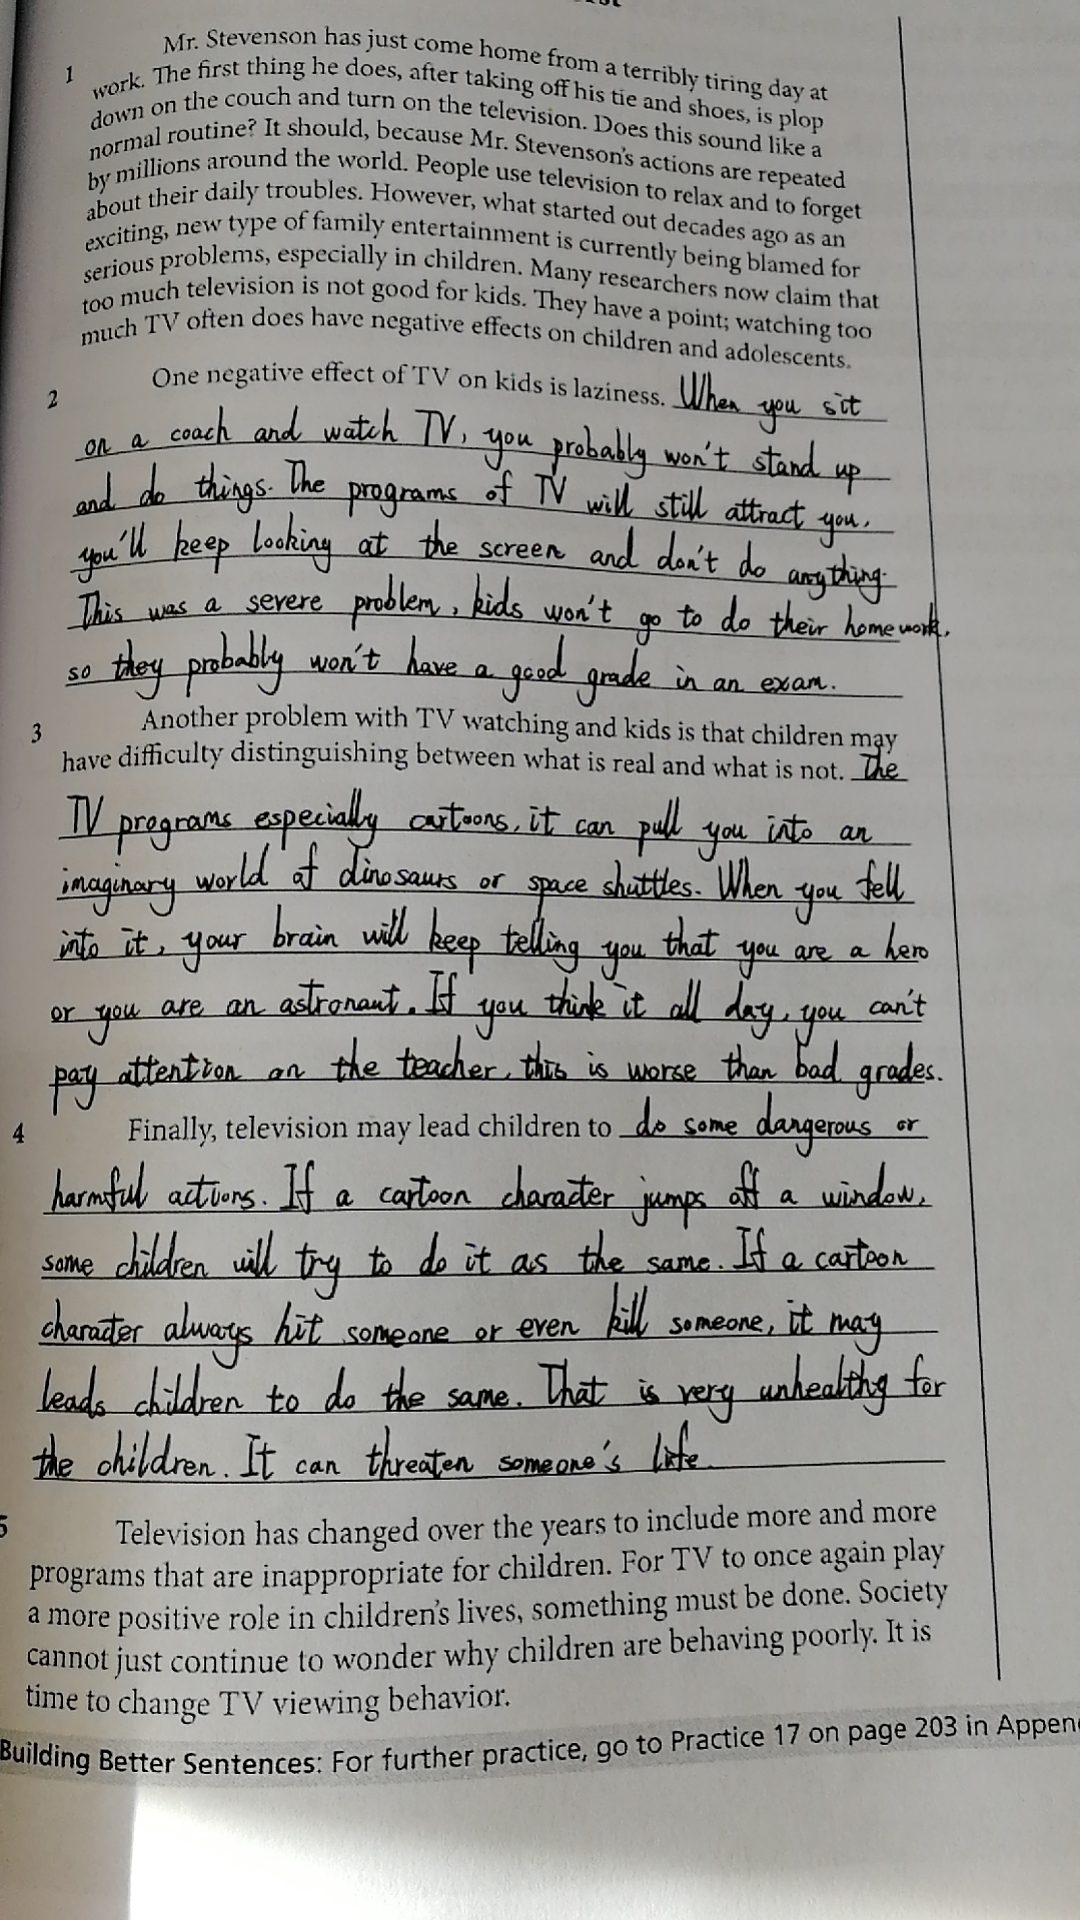 1 Mr. Stevenson has just come home from a terribly tiring day at
work. The first thing he does, after taking off his tie and shoes, is plop
down on the couch and turn on the television. Does this sound like a
normal routine? It should, because Mr. Stevenson's actions are repeated
by millions around the world. People use television to relax and to forget
about their daily troubles. However, what started out decades ago as an
exciting, new type of family entertainment is currently being blamed for
serious problems, especially in children. Many researchers now claim that
too much television is not good for kids. They have a point; watching too
much TV often does have negative effects on children and adolescents.
2 One negative effect of TV on kids is laziness. When you sit
on a coach and watch TV, you probably won't stand up
and do things. The programs of TV will still attract you,
you'll keep looking at the screen and don't do anything.
This was a severe problem, kids won't go to do their homework,
so they probably won't have a good grade in an exam.
3 Another problem with TV watching and kids is that children may
have difficulty distinguishing between what is real and what is not. The
TV programs especially cartoons, it can pull you into an
imaginary world of dinosaurs or space shuttles. When you fell
into it, your brain will keep telling you that you are a hero
or you are an astronaut. If you think it all day, you can't
pay attention on the teacher, this is worse than bad grades.
4 Finally, television may lead children to do some dangerous or
harmful actions. If a cartoon character jumps off a window,
some children will try to do it as the same. If a cartoon
character always hit someone or even kill someone, it may
leads children to do the same. That is very unhealthy for
the children. It can threaten someone's life.
5 Television has changed over the years to include more and more
programs that are inappropriate for children. For TV to once again play
a more positive role in children's lives, something must be done. Society
cannot just continue to wonder why children are behaving poorly. It is
time to change TV viewing behavior.
Building Better Sentences: For further practice, go to Practice 17 on page 203 in Appen